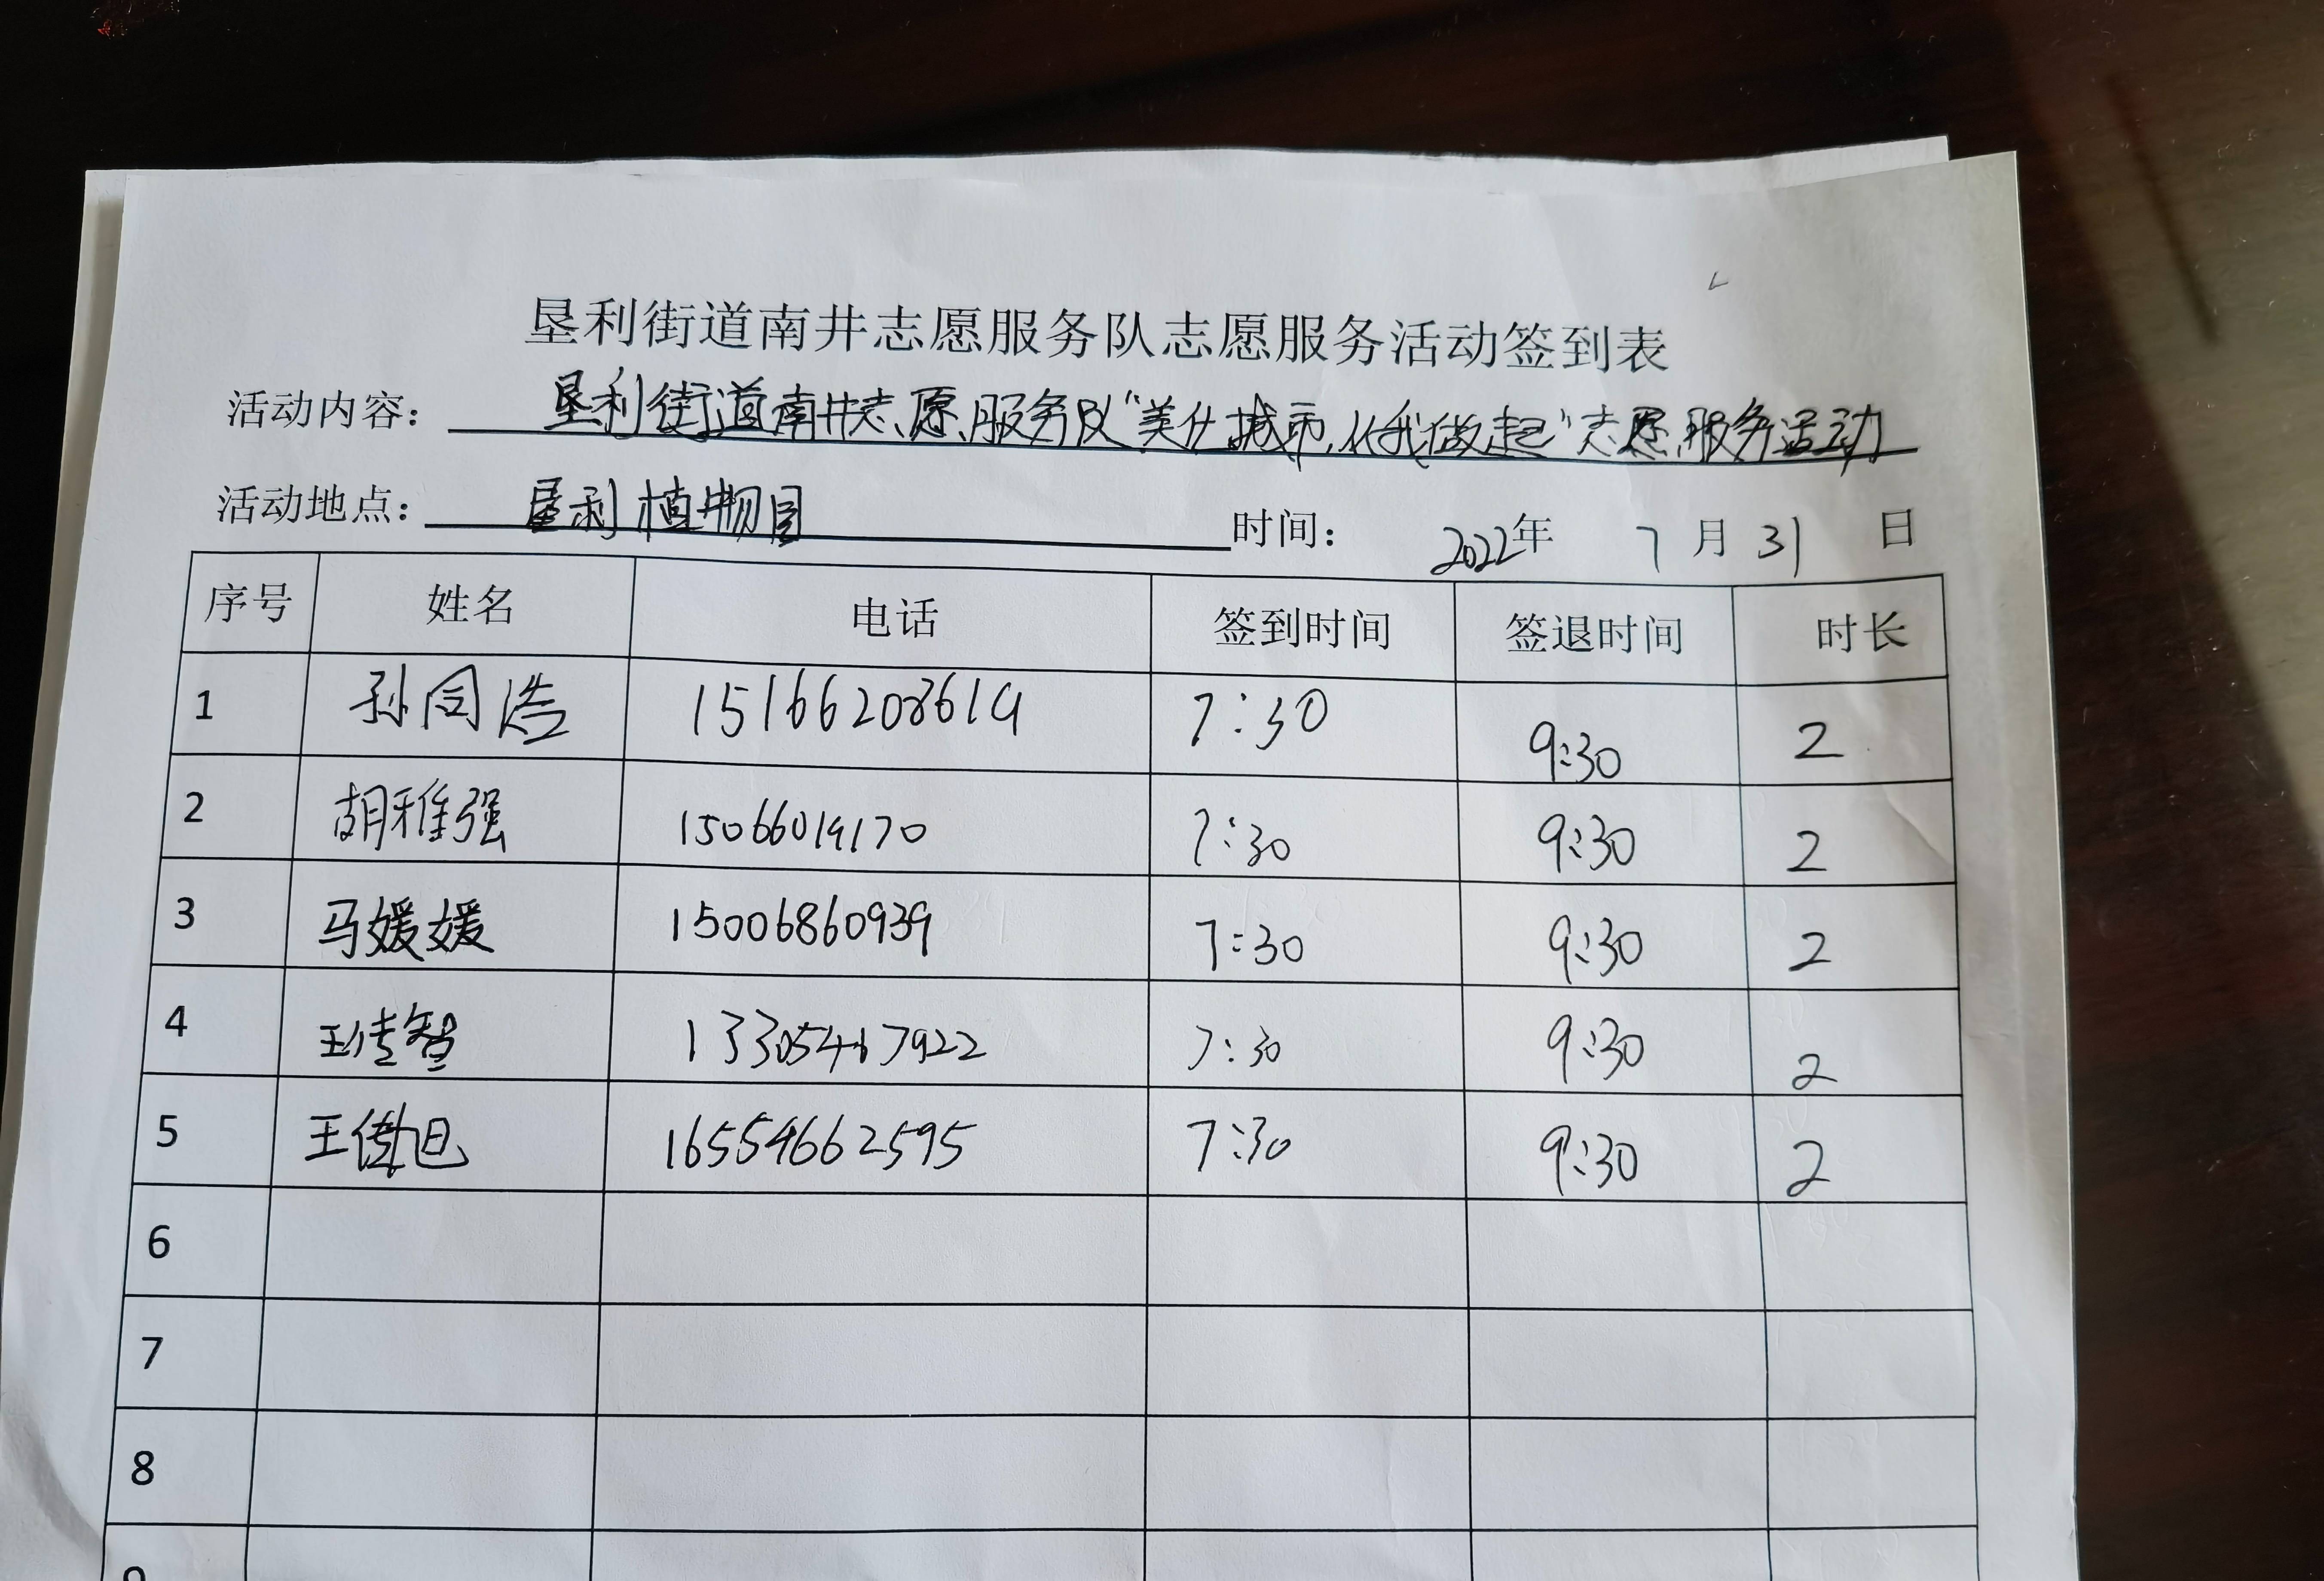 垦利街道南井志愿服务队志愿服务活动签到表
活动内容：垦利街道南井志愿服务队“美化城市，从我做起”志愿服务活动
活动地点：垦利植物园 时间：2022年 7月31日
序号 姓名 电话 签到时间 签退时间 时长
1 孙同浩 15166208619 7:30 9:30 2
2 胡雅强 15066019170 7:30 9:30 2
3 马媛媛 15006860939 7:30 9:30 2
4 王传智 7:30 9:30 2
5 王 旭 16554662595 7:30 9:30 2
6
7
8
9